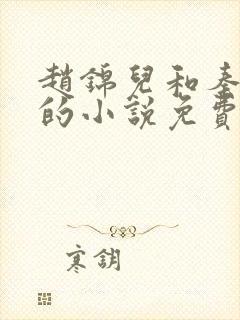 趙錦兒和秦
的小說免費
寒鈅